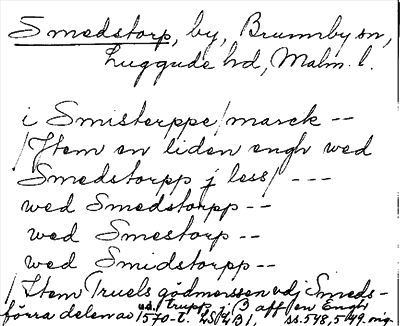 Smedstorp, by, Brunnby sn,
Luggude hd, Malm. l.
i Smisterppe/marck --
/Item en liden engh wed
Smedstorpp j less/ ---
wed Smedstorpp --
wed Smestorp --
wed Smidstorpp --
/Item Truels godmerssen vdj Smeds-
torpp : 3 aff en Engh
förra delen av 1570-t. ss. 548, 549. mig.